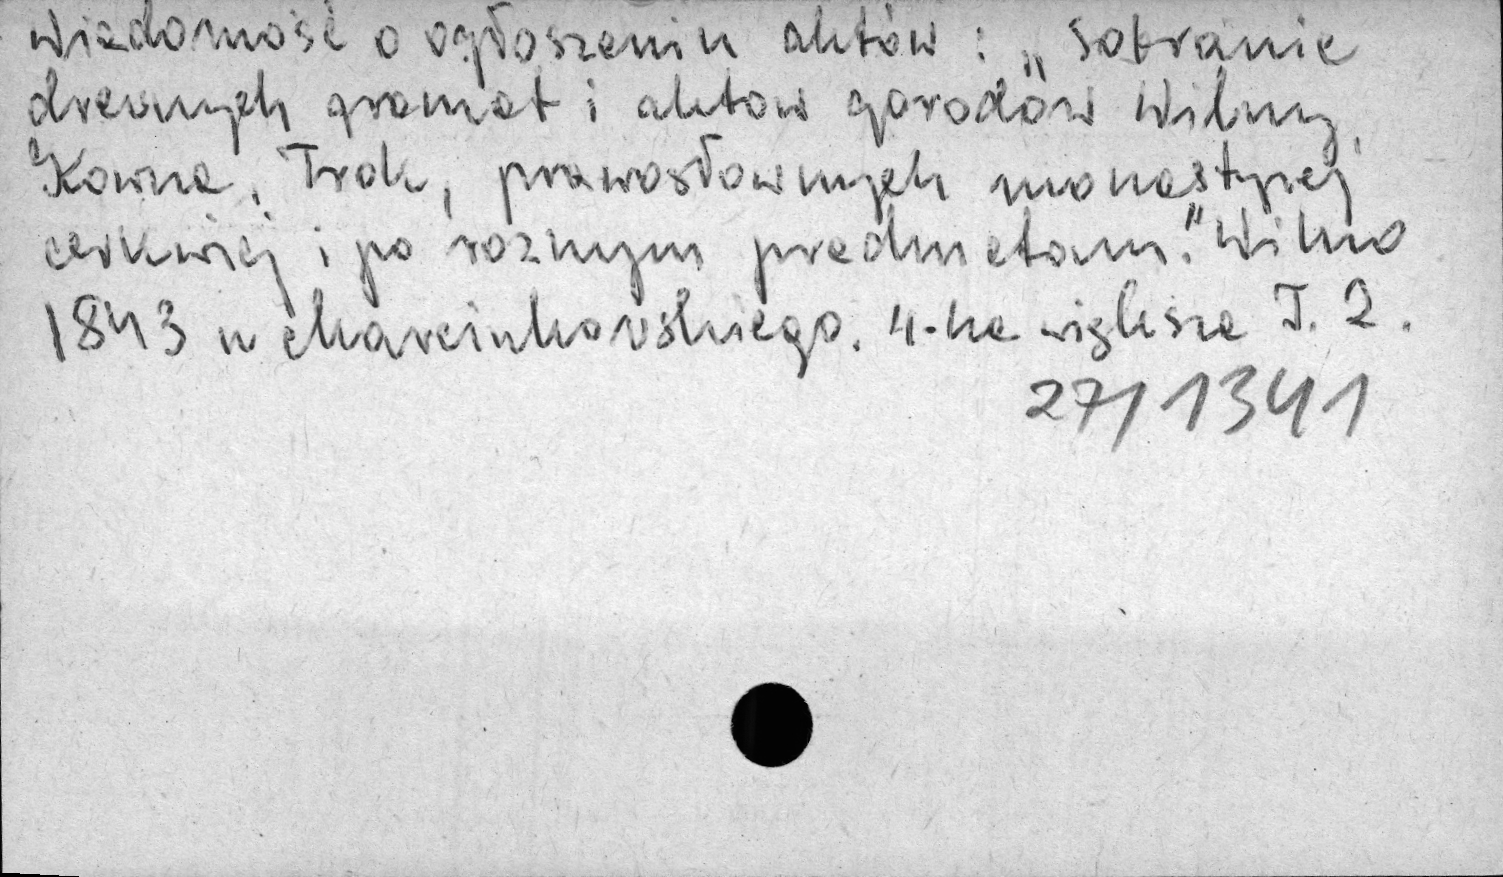 Wiadomość o ogłoszeniu aktów : „Sobranie
drewnych gramat i aktow gorodów Wilny,
Kowna, Trok, prawosławnych monastyrej
cerkwiej i po roznym predmetam." Wilno
1843 u Marcinkowskiego. 4-ka większa T. 2.
27/1341